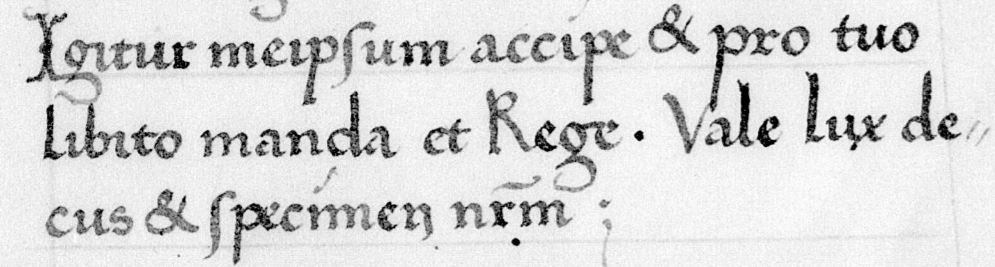 Igitur meipſum accipe & pro tuo
libito manda et Rege. Vale lux de〃
cus & ſpecimen nr̄m ;